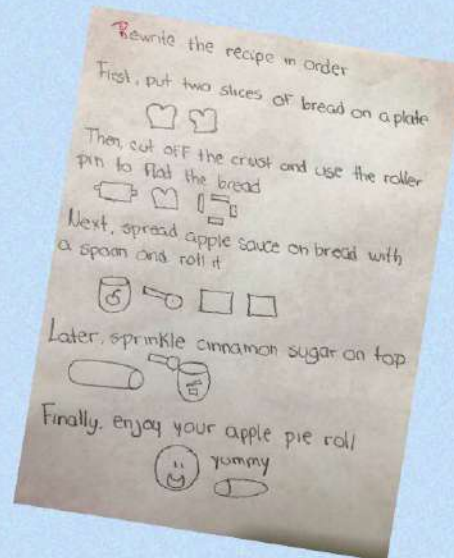 Rewrite the recipe in order
First, put two slices of bread on a plate
Then, cut off the crust and use the roller
pin to flat the bread
Next, spread apple sauce on bread with
a spoon and roll it
Later, sprinkle cinnamon sugar on top
Finally, enjoy your apple pie roll
yummy